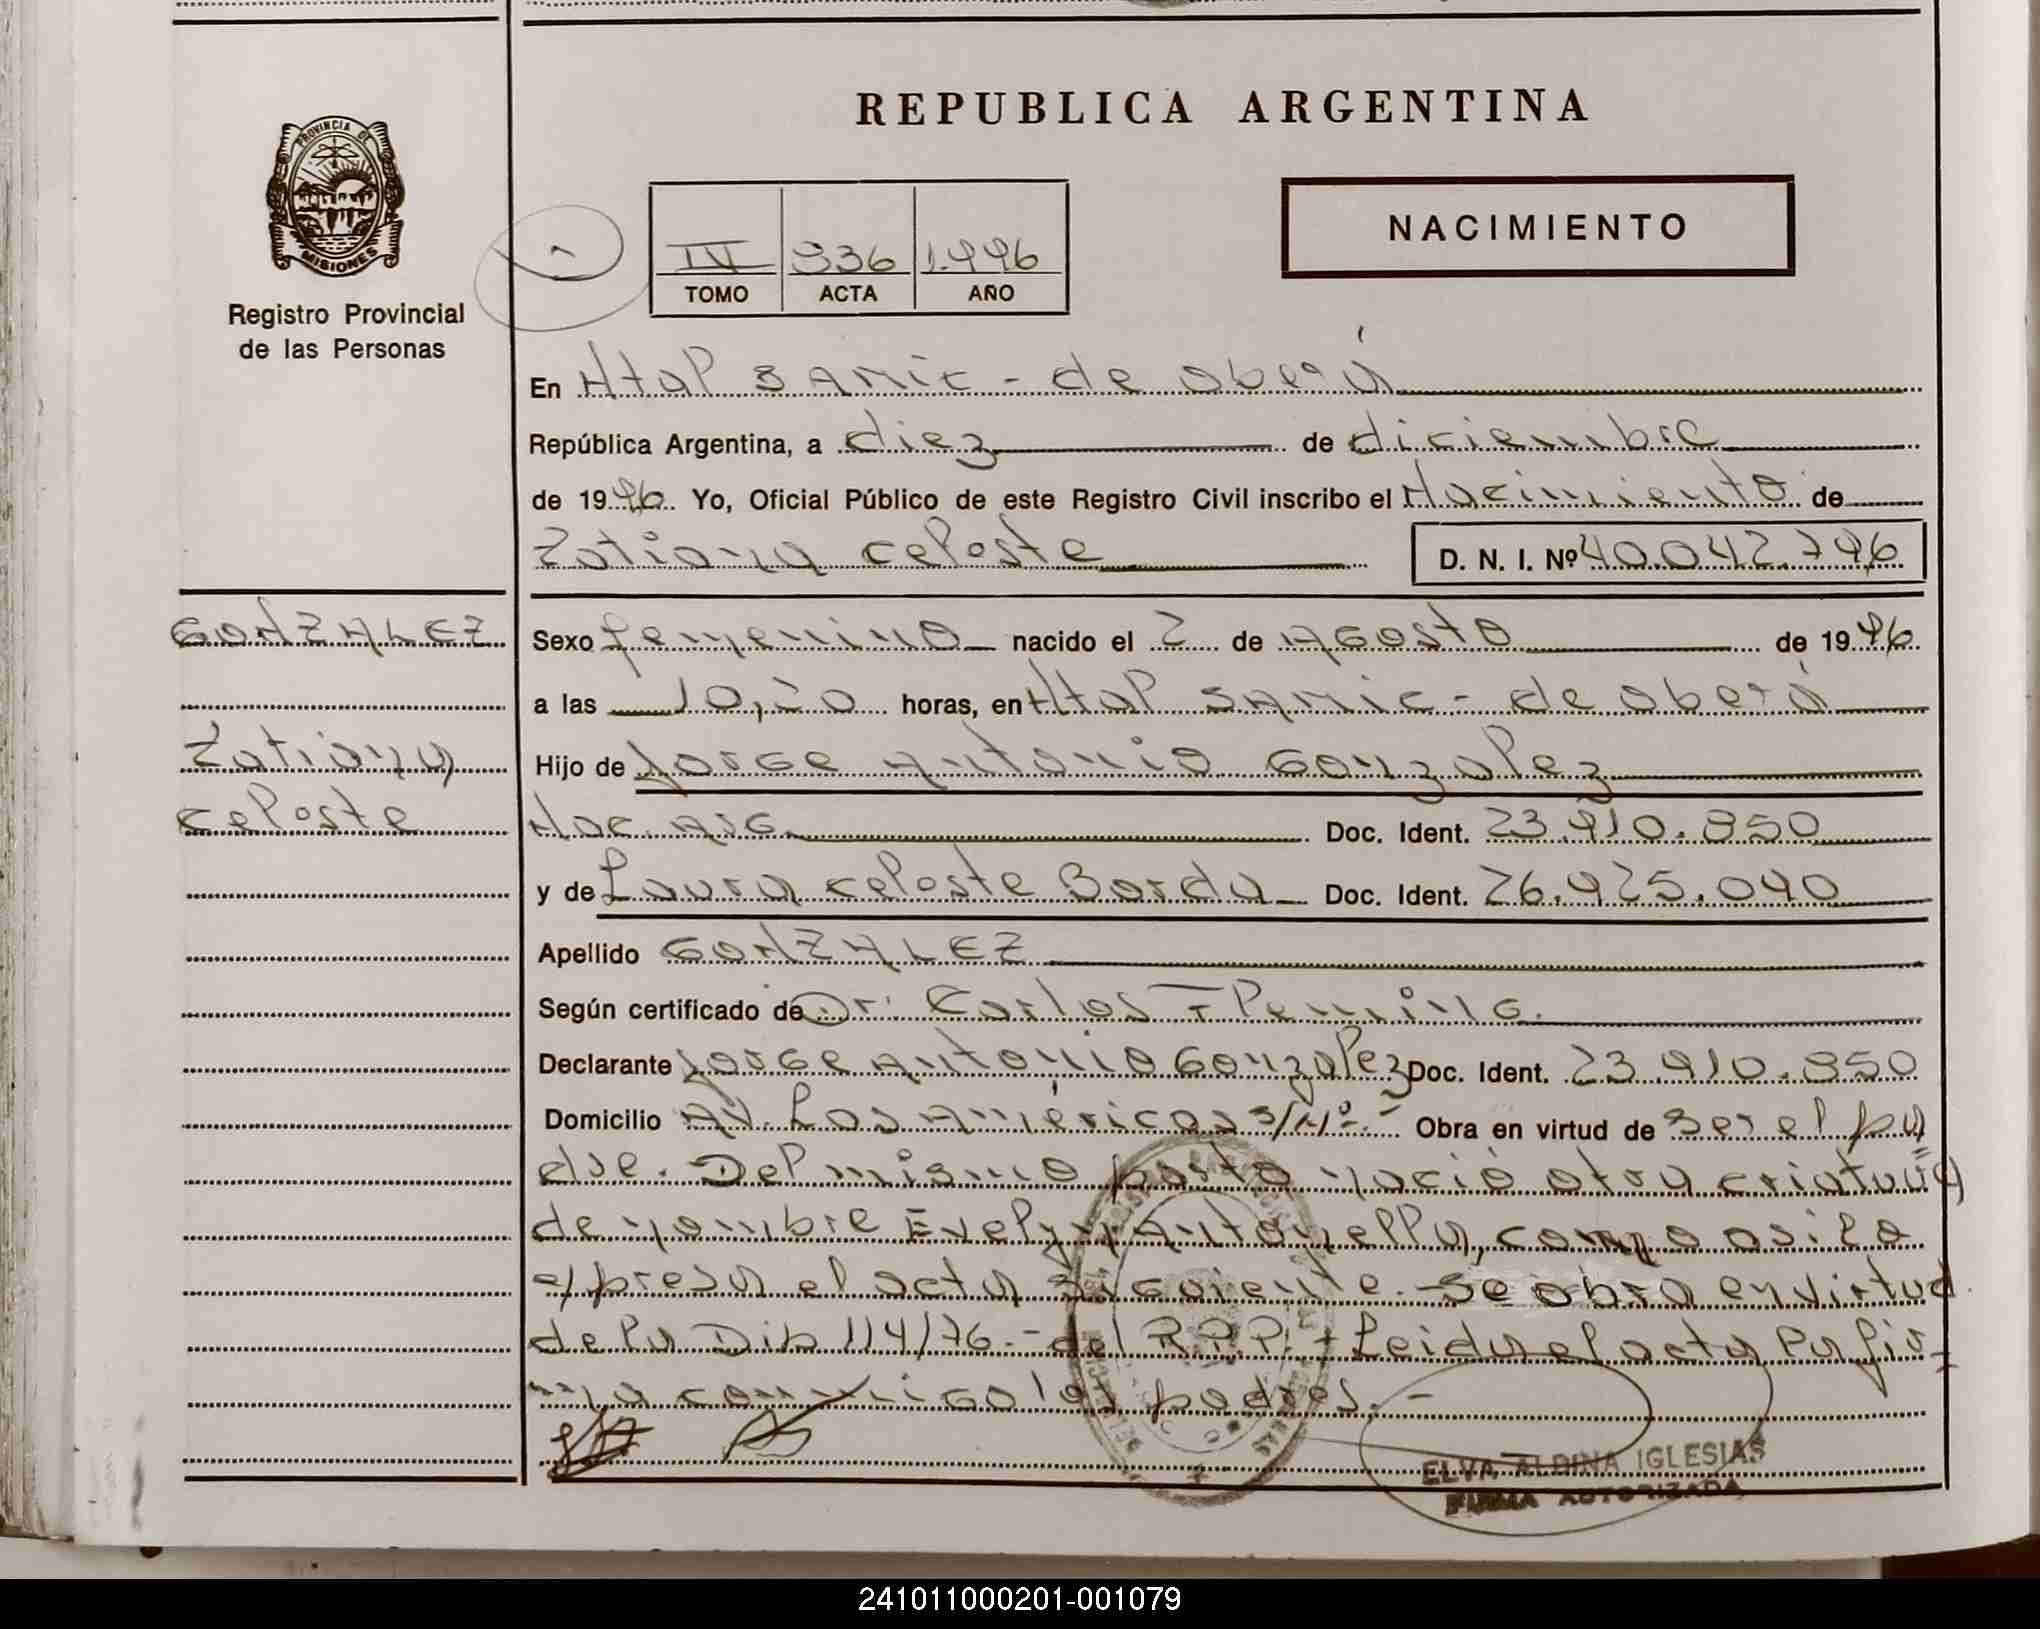 REPUBLICA ARGENTINA
PROVINCIA DE
MISIONES
Registro Provincial
de las Personas
NACIMIENTO
IV 936 1.996
TOMO ACTA AÑO
En Htal SAMIC - de oberá
República Argentina, a diez de diciembre
de 1996. Yo, Oficial Público de este Registro Civil inscribo el Nacimiento de
Tatiana celeste D. N. I. Nº 40.042.796
GONZALEZ
Tatiana
celeste
Sexo femenino nacido el 2 de AGosto de 1996
a las 10,20 horas, en Htal SAMIC - de oberá
Hijo de Jorge Antonio Gonzalez
Nac. ARG. Doc. Ident. 23.910.850
y de Laura celeste Borda Doc. Ident. 26.925.040
Apellido GONZALEZ
Según certificado de Dr. Carlos Fleming.
Declarante Jorge Antonio Gonzalez Doc. Ident. 23.910.850
Domicilio AV. Las Américas S/Nº.- Obra en virtud de ser el pa
dre. Del mismo parto nació otra criatura
de nombre Evelyn Antonella, como asi lo
expresa el acta siguiente.- Se obra en virtud
de la Dis 114/76.- del R.P.P.- Leida el acta la fir-
ma conmigo los padres.-
ELVA ALDINA IGLESIAS
FIRMA AUTORIZADA
241011000201-001079